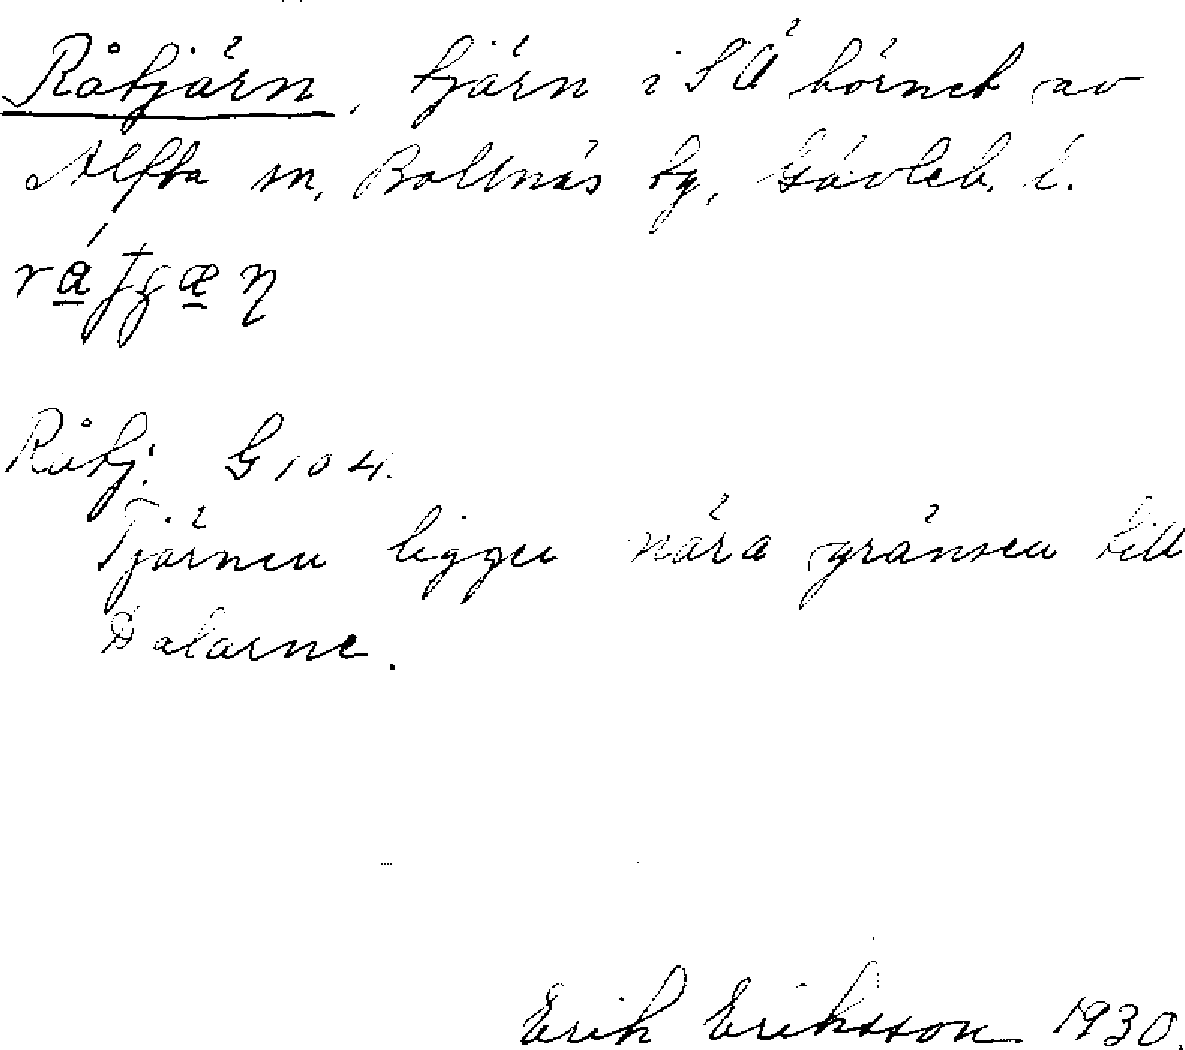 Råtjärn, tjärn i SÄ hörnet av
Alfta sn, Bollnäs tg, Gävleb. l.
Råtj. G 104.
Tjärnen ligger nära gränsen till
Dalarne.
Erik Eriksson 1930.